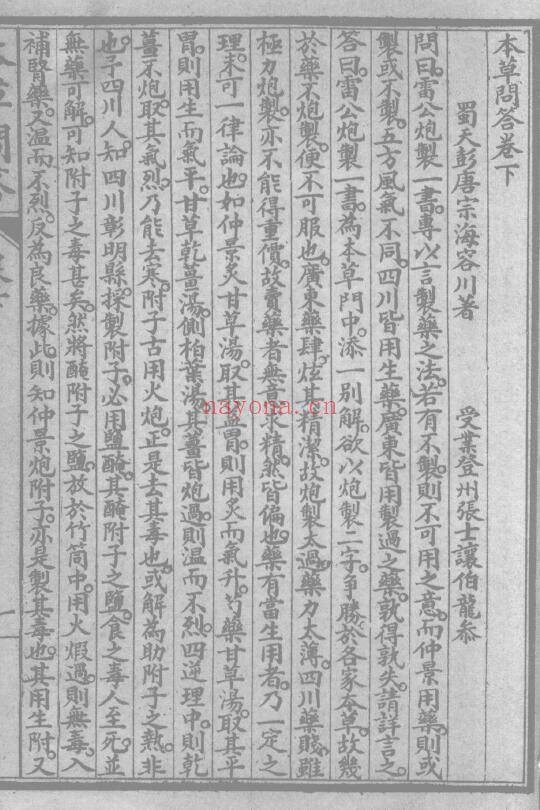 本草問答卷下
蜀天彭唐宗海容川著 受業登州張士讓伯龍叅
問曰雷公炮製一書專以言製藥之法若有不製則不可用之意而仲景用藥則或
製或不製五方風氣不同四川皆用生藥廣東皆用製過之藥孰得孰失請詳言之
答曰雷公炮製一書為本草門中添一別解欲以炮製二字爭勝於各家本草故幾
於藥不炮製便不可服也廣東藥肆炫其精潔故炮製太過藥力太薄四川藥賤雖
極力炮製亦不能得重價故賣藥者無意求精然皆偏也藥有當生用者乃一定之
理未可一律論也如仲景炙甘草湯取其益胃則用炙而氣升芍藥甘草湯取其平
胃則用生而氣平甘草乾薑湯側柏葉湯其薑皆炮過則温而不烈四逆理中則乾
薑不炮取其氣烈乃能去寒附子古用火炮正是去其毒也或解為助附子之熱非
也予四川人知四川彰明縣採製附子必用鹽醃其醃附子之鹽食之毒人至死並
無藥可解可知附子之毒甚矣然將醃附子之鹽放於竹筒中用火煆過則無毒入
補腎藥又温而不烈反為良藥據此則知仲景炮附子亦是製其毒也其用生附又
nayona.cn